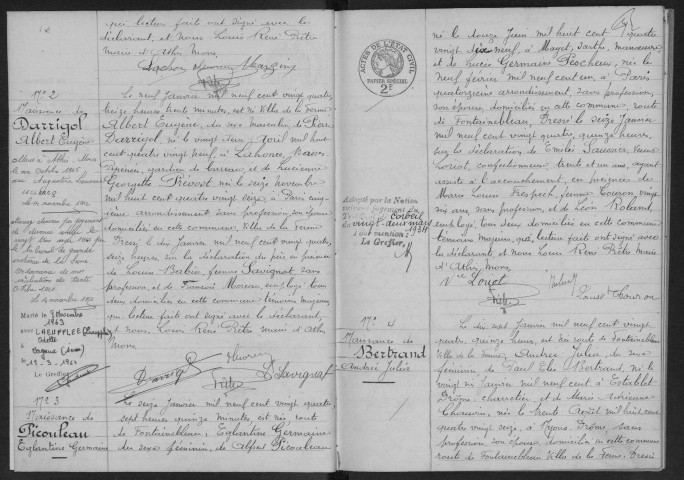 qui lecture faite ont signé avec le
déclarant, et nous Louis René Piètre
maire d'Athis Mons
N° 2
Naissance de
Darrigol
Albert Eugène
Le neuf Janvier mil neuf cent vingt quatre,
seize heures trente minutes, est né Villa de la Ferme
Albert Eugène, du sexe masculin de Jean
Darrigol, né le vingt deux Avril mil huit
cent quatre vingt neuf, à Lahonce, Basses
Pyrénées, gardien de bureau, et de Lucienne
Georgette Prévost, née le seize novembre
mil huit cent quatre vingt seize, à Paris
arrondissement sans profession, son épouse
domiciliés en cette commune Villa de la Ferme
Dressé le dix Janvier mil neuf cent vingt quatre,
seize heures, sur la déclaration du père en présence
de Louise Babin, femme Savignat, sans
profession, et de François Moreau, employé, tous
deux domiciliés en cette commune témoins majeurs,
qui, lecture faite ont signé avec le déclarant,
et nous, Louis René Piètre maire d'Athis
Mons
Marié le 8 Novembre
1943
avec LAEUFFLEE
Odette
le 19-3-1964
Le Greffier
N° 3
Naissance de
Picouleau
Eglantine Germaine
Le seize Janvier mil neuf cent vingt quatre,
sept heures quinze minutes, est née route
de Fontainebleau, Eglantine Germaine
du sexe féminin, de Alfred Picouleau
né le douze Juin mil huit cent quatre
vingt dix neuf, à Mayet, Sarthe, manœuvre
et de Lucie Germaine Péocheux, née le
neuf février mil neuf cent un, à Paris
quatorzième arrondissement, sans profession,
son épouse, domiciliés en cette commune, route
de Fontainebleau. Dressé le seize Janvier
mil neuf cent vingt quatre, quinze heures,
sur la déclaration de Emilie Saussier, veuve
Louet, confectionneuse trente et un ans, ayant
assisté à l'accouchement, en présence de
Marie Louise Trespech, femme Touron, vingt
six ans, sans profession, et de Léon Roland,
employé, tous deux domiciliés en cette commune
témoins majeurs, qui, lecture faite ont signé avec
la déclarante, et nous Louis René Piètre maire
d'Athis Mons
Vve Louet
ACTES DE L'ETAT CIVIL
PAPIER SPÉCIAL
2F
Adopté par la Nation
suivant jugement du
Tribunal de Corbeil
du vingt-deux mars
1934
dont mention :
Le Greffier,
N° 4
Naissance de
Bertrand
Andrée Julia
Le dix sept Janvier mil neuf cent vingt
quatre, quinze heures, est née route de Fontainebleau
Villa de la Ferme, Andrée Julia, du sexe
féminin, de Paul Elie Bertrand, né le
vingt six Janvier mil neuf cent à Establet
Drôme, charretier, et de Marie Adrienne
Chauvin, née le trente Août mil huit cent
quatre vingt seize, à Nyons, Drôme, sans
profession, son épouse domiciliés en cette commune
route de Fontainebleau Villa de la Ferme, Dressé